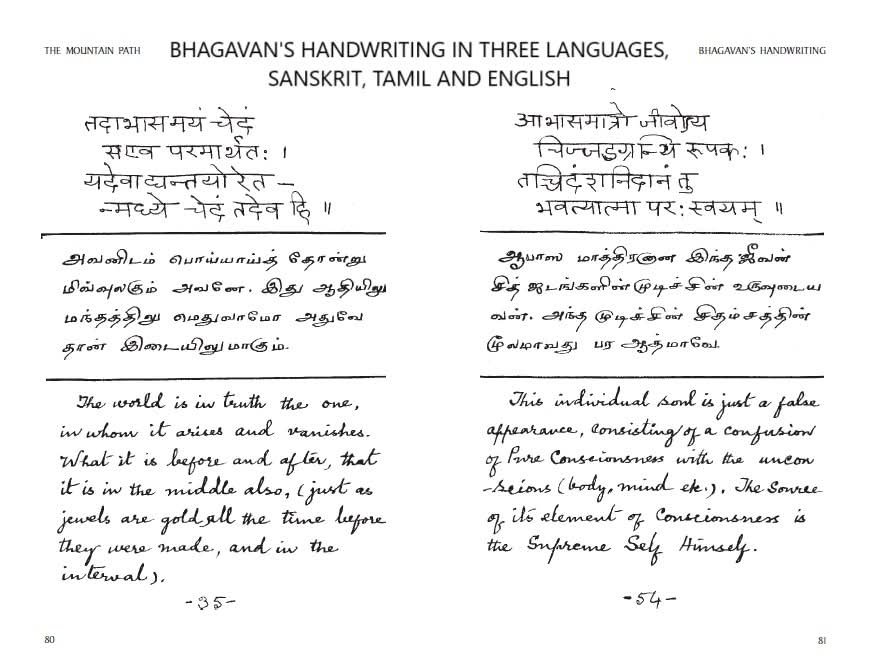 THE MOUNTAIN PATH
BHAGAVAN'S HANDWRITING IN THREE LANGUAGES,
SANSKRIT, TAMIL AND ENGLISH
BHAGAVAN'S HANDWRITING
तदाभासमयं चेदं
स एव परमार्थतः ।
यदेवाद्यन्तयोरेत –
न्मध्ये चेदं तदेव हि ॥
அவனிடம் பொய்யாய்த் தோன்று
மிவ்வுலகும் அவனே. இது ஆதியிலு
மந்தத்திலு மெதுவாமோ அதுவே
தான் இடையிலுமாகும்.
The world is in truth the one,
in whom it arises and vanishes.
What it is before and after, that
it is in the middle also, (just as
jewels are gold all the time before
they were made, and in the
interval).
-35-
80
आभासमात्रो जीवोऽय
चिज्जडग्रन्थि रूपकः ।
तच्चिदंशनिदानं तु
भवत्यात्मा परः स्वयम् ॥
ஆபாஸ மாத்திரனான இந்த ஜீவன்
சித் ஜடங்களின் முடிச்சின் உருவுடைய
வன். அந்த முடிச்சின் சிதம்சத்தின்
மூலமாவது பர ஆத்மாவே.
This individual soul is just a false
appearance, consisting of a confusion
of Pure Consciousness with the uncon
-scious (body, mind etc.). The Source
of its element of Consciousness is
the Supreme Self Himself.
-54-
81